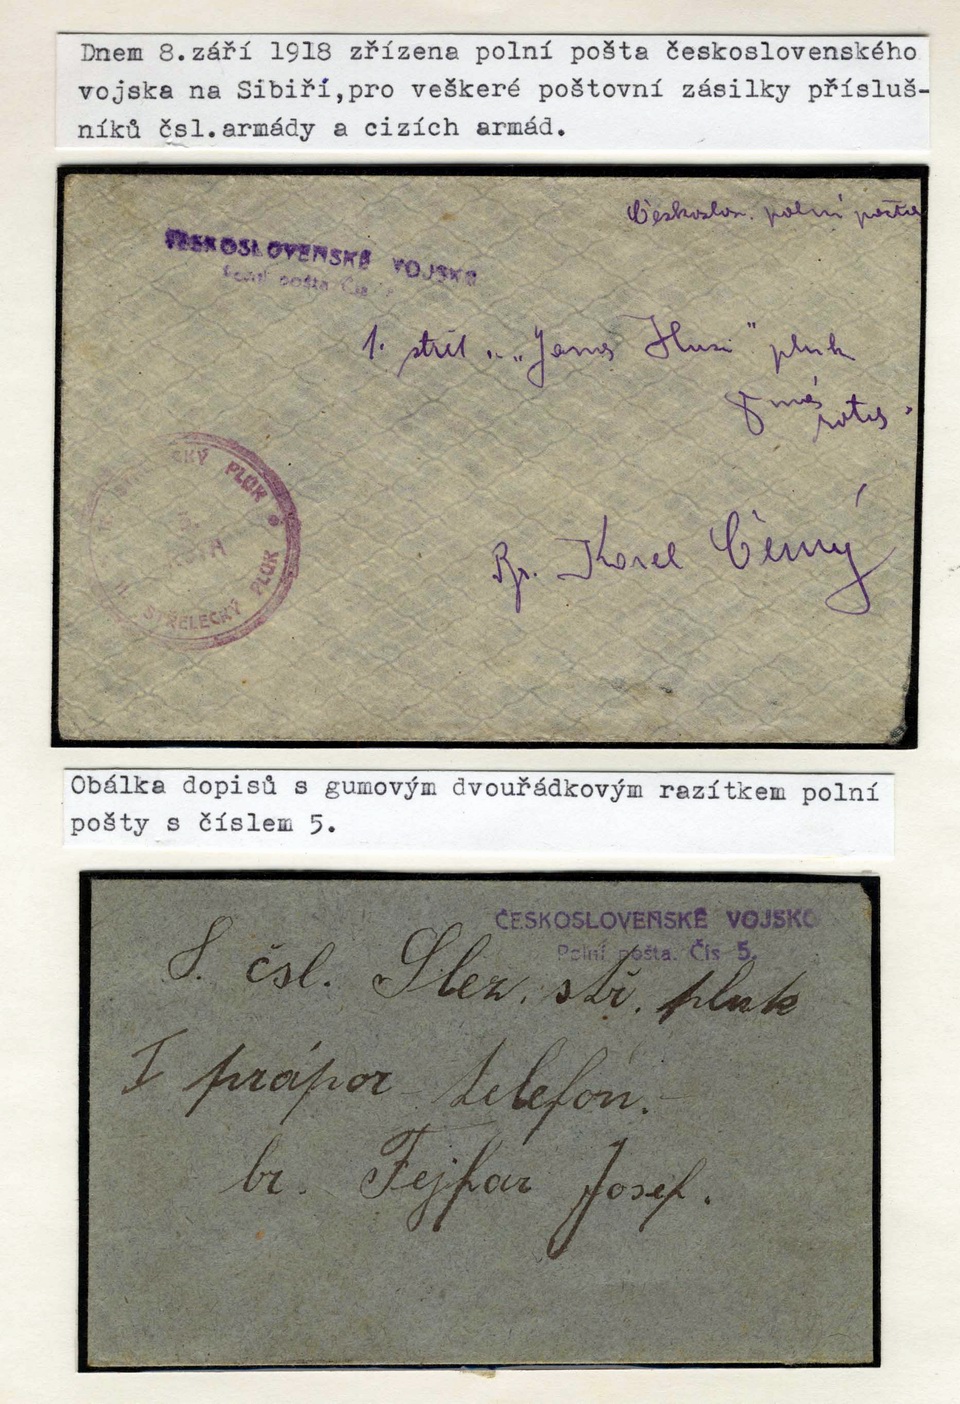 Dnem 8.září 1918 zřízena polní pošta československého
vojska na Sibiři,pro veškeré poštovní zásilky přísluš-
níků čsl.armády a cizích armád.
Českoslov. polní pošta
ČESKOSLOVENSKÉ VOJSKO
Polní pošta Čis
1. střel. „Jana Husi" pluk
8má rota.
STŘELECKÝ PLUK
II. STŘELECKÝ PLUK
Rp. Karel Černý
Obálka dopisů s gumovým dvouřádkovým razítkem polní
pošty s číslem 5.
ČESKOSLOVENSKÉ VOJSKO
Polní pošta. Čis 5.
8. čsl. Slez. stř. pluk
I prápor telefón.
br. Fejfar Josef.